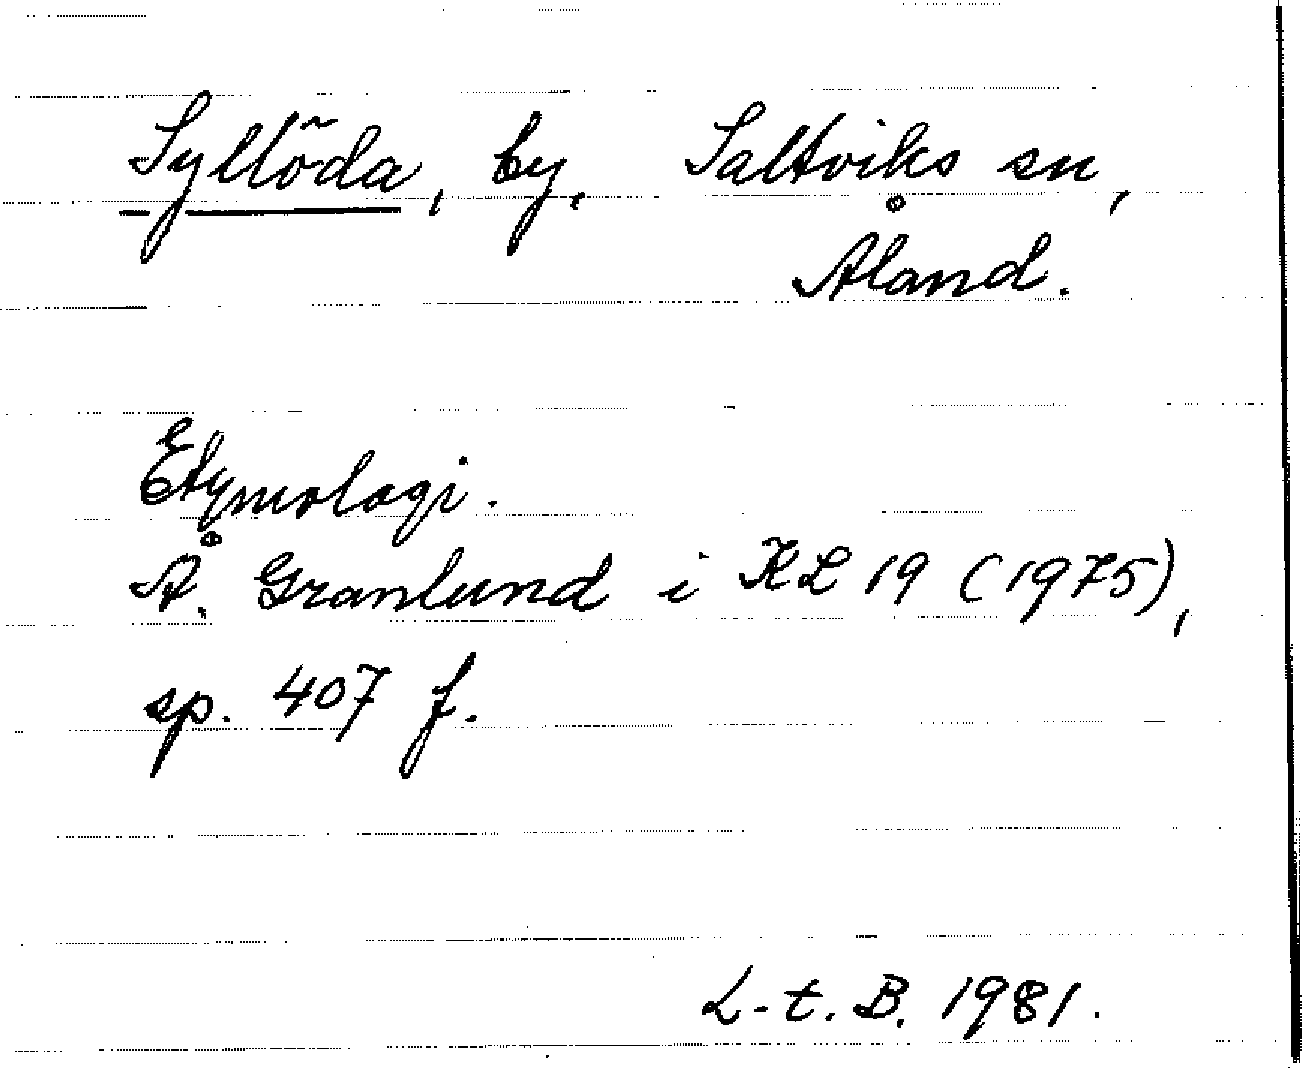 Syllöda, by. Saltviks sn,
Åland.
Etymologi.
Å. Granlund i KL 19 (1975),
sp. 407 f.
L-t. B. 1981.